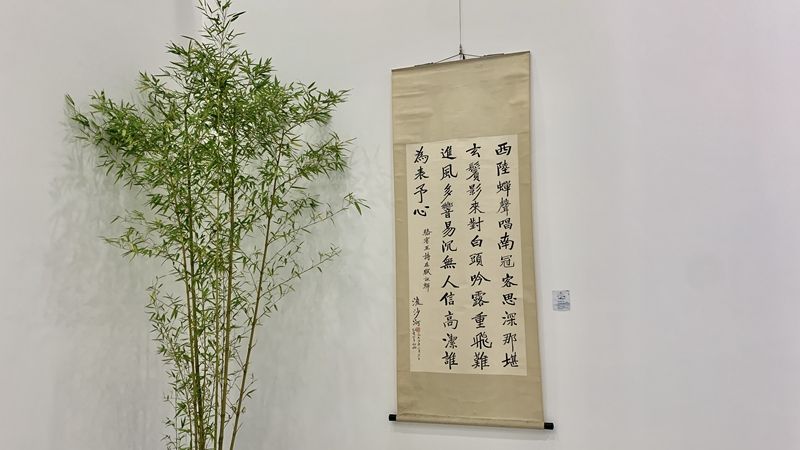 西陸蟬聲唱南冠客思深那堪
玄鬢影來對白頭吟露重飛難
進風多響易沉無人信高潔誰
為表予心
駱賓王詩在獄詠蟬
流沙河